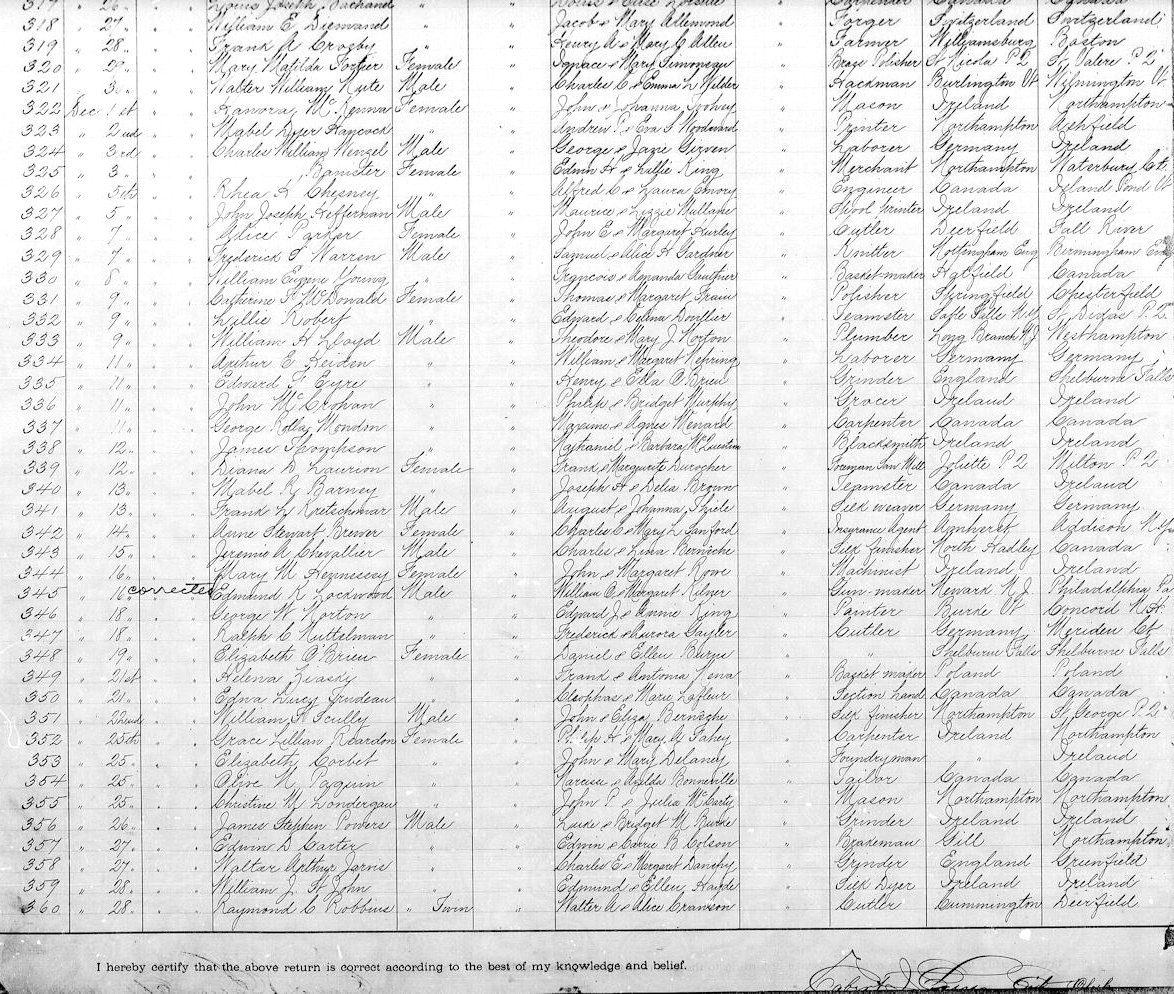 317 " 26 " Louis Joseph Pachand " " Carpenter Canada Canada
318 " 27 " William E Diemand " " Jacob & Mary Allemond " Forger Switzerland Switzerland
319 " 28 " Frank A Crosby " " Henry A & Mary C Allen " Farmer Williamsburg Boston
320 " 29 " Mary Matilda Female " Ignace & Mary " Brass Polisher St Nicola P2 St Valere P2
321 " 30 " Walter William Kute Male " Charles C & Emma L Wilder " Hackman Burlington Vt Wilmington Vt
322 Dec 1st " Hanora McKenna Female " John & Johanna Toohey " Mason Ireland Northampton
323 " 2nd " Mabel Dyer Hancock " " Andrew P & Eva S Woodward " Printer Northampton Ashfield
324 " 3rd " Charles William Wenzel Male " George & Jazie Girven " Laborer Germany Ireland
325 " 3 " Banister Female " Edwin H & Lillie King " Merchant Northampton Waterbury Ct
326 " 5th " Rhea H Chesney " " Alfred C & Laura Emory " Engineer Canada Island Pond Vt
327 " 5 " John Joseph Heffernan Male " Maurice & Lizzie Mullane " Spool Printer Ireland Ireland
328 " 7 " Alice Parker Female " John E & Margaret Hurley " Cutler Deerfield Fall River
329 " 7 " Frederick S Warren Male " Samuel & Alice H Gardner " Knitter Nottingham Eng Birmingham Eng
330 " 8 " William Eugene Young " " Francois & Amanda Gauthier " Basket maker Hatfield Canada
331 " 9 " Catherine F McDonald Female " Thomas & Margaret Frain " Polisher Springfield Chesterfield
332 " 9 " Lillie Robert " " Edward & Celina " Teamster St Didas P.2.
333 " 9 " William H Lloyd Male " Theodore & Mary J Norton " Plumber Long Branch NJ Westhampton
334 " 11 " Arthur E Heiden " " William & Margaret Nehring " Laborer Germany Germany
335 " 11 " Edward F Eyre " " Henry & Etta O'Brien " Grinder England Shelburne Falls
336 " 11 " John McCrohan " " Philip & Bridget Murphy " Grocer Ireland Ireland
337 " 11 " George Rollay Mondon " " Maxime & Agnes Menard " Carpenter Canada Canada
338 " 12 " James Thompson " " Nathaniel & Barbara McQuestion " Blacksmith Ireland Ireland
339 " 12 " Diana D Laurion Female " Frank & Margurite Durocher " Foreman Saw Mill Joliette P2 Milton P2
340 " 13 " Mabel R Barney " " Joseph H & Delia Brown " Teamster Canada Ireland
341 " 13 " Frank L Kretschmar Male " August & Johanna Thiele " Silk weaver Germany Germany
342 " 14 " Anne Stewart Brewer Female " Charles C & Mary L Sanford " Insurance Agent Amherst Addison N.Y
343 " 15 " Jeremie A Chevallier Male " Charles & Lina Berniche " Silk finisher North Hadley Canada
344 " 16 " Mary M Hennessey Female " John & Margaret Rowe " Machinist Ireland Ireland
345 " 16 corrected Edmund K Lockwood Male " William C & Margaret Milner " Gun maker Newark N J Philadelphia Pa
346 " 18 " George W Norton " " Edward J & Annie King " Painter Burke Vt Concord N H
347 " 18 " Ralph C Nuttelman " " Frederick & Aurora Sayler " Cutler Germany Meriden Ct
348 " 19 " Elizabeth O'Brien Female " Daniel & Ellen Burns " " Shelburne Falls Shelburne Falls
349 " 21st " Helena Ziask " " Frank & Antonia Kena " Basket maker Poland Poland
350 " 21 " Edna Lucy Trudeau " " Cleophas & Marie Lafleur " Section hand Canada Canada
351 " 22nd " William H Scully Male " John & Eliza Berniche " Silk finisher Northampton St George P.2
352 " 25th " Grace Lillian Reardon Female " Philip H & Mary A Fahey " Carpenter Ireland Northampton
353 " 25 " Elizabeth Corbet " " John & Mary Delaney " Foundryman " Ireland
354 " 25 " Olive N Paquin " " Narcisse & Exilda Bonneville " Tailor Canada Canada
355 " 25 " Christine M Londergan " " John P & Julia McCarty " Mason Northampton Northampton
356 " 26 " James Stephen Powers Male " Luke & Bridget M Burke " Grinder Ireland Ireland
357 " 27 " Edwin D Carter " " Edwin & Carrie B Olson " Brakeman Gill Northampton
358 " 27 " Walter Arthur Jarvis " " Charles E & Margaret Danehy " Grinder England Greenfield
359 " 28 " William J St John " " Edmund & Ellen Hayde " Silk Dyer Ireland Ireland
360 " 28 " Raymond C Robbins " Twin " Walter A & Alice Crawson " Cutler Cummington Deerfield
I hereby certify that the above return is correct according to the best of my knowledge and belief.
City Clerk